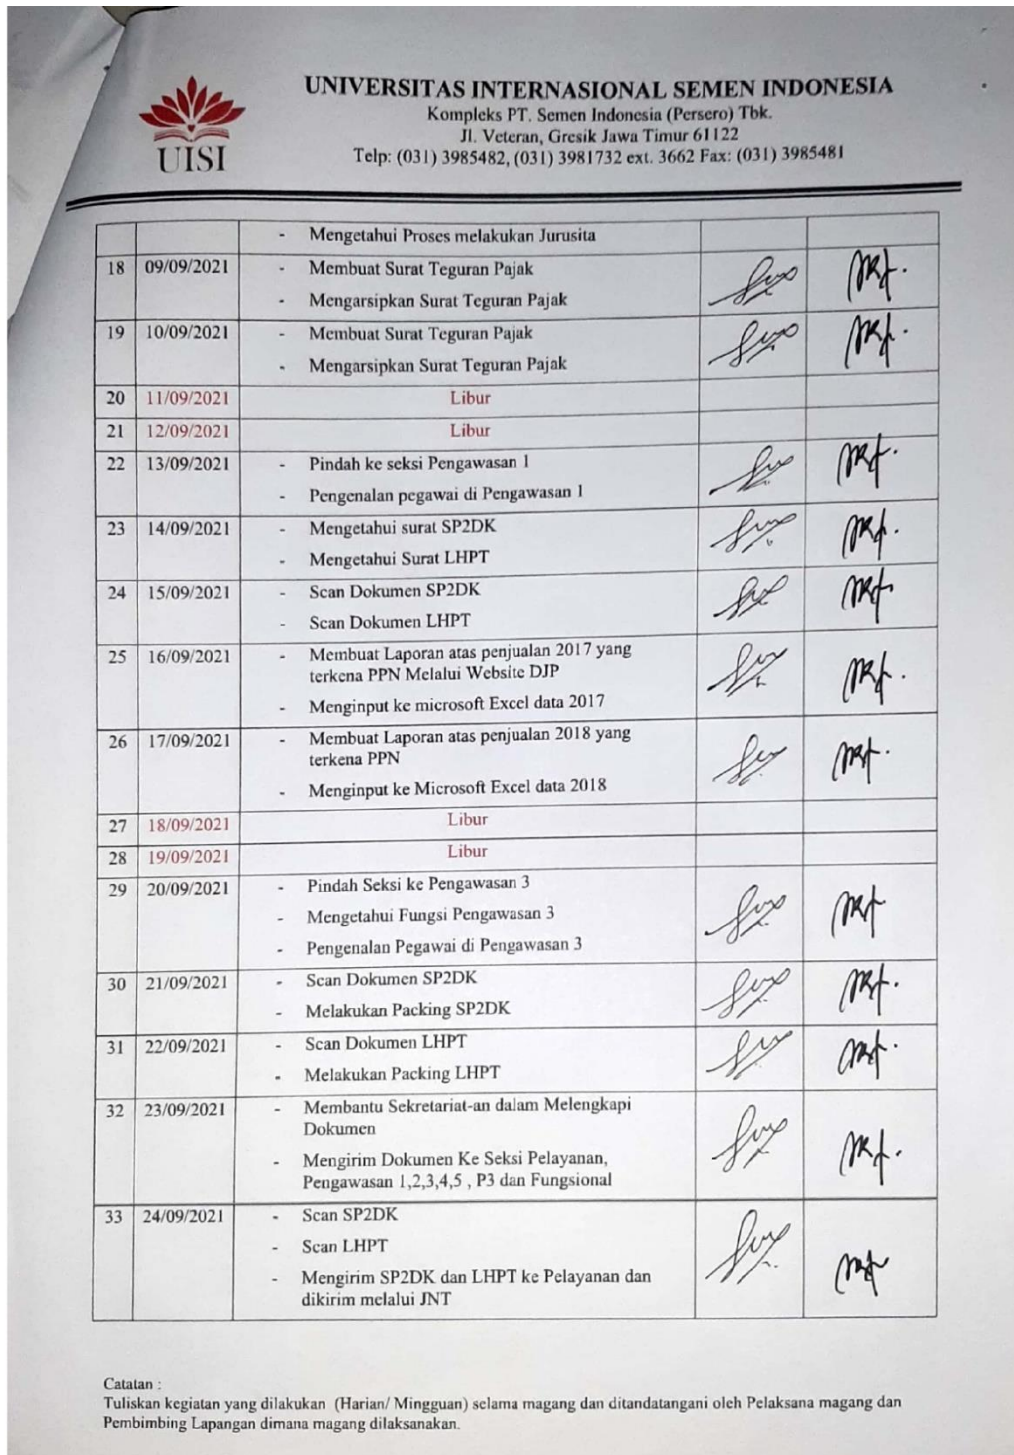 UISI
UNIVERSITAS INTERNASIONAL SEMEN INDONESIA
Kompleks PT. Semen Indonesia (Persero) Tbk.
Jl. Veteran, Gresik Jawa Timur 61122
Telp: (031) 3985482, (031) 3981732 ext. 3662 Fax: (031) 3985481
- Mengetahui Proses melakukan Jurusita
18 09/09/2021 - Membuat Surat Teguran Pajak
- Mengarsipkan Surat Teguran Pajak
19 10/09/2021 - Membuat Surat Teguran Pajak
- Mengarsipkan Surat Teguran Pajak
20 11/09/2021 Libur
21 12/09/2021 Libur
22 13/09/2021 - Pindah ke seksi Pengawasan 1
- Pengenalan pegawai di Pengawasan 1
23 14/09/2021 - Mengetahui surat SP2DK
- Mengetahui Surat LHPT
24 15/09/2021 - Scan Dokumen SP2DK
- Scan Dokumen LHPT
25 16/09/2021 - Membuat Laporan atas penjualan 2017 yang
terkena PPN Melalui Website DJP
- Menginput ke microsoft Excel data 2017
26 17/09/2021 - Membuat Laporan atas penjualan 2018 yang
terkena PPN
- Menginput ke Microsoft Excel data 2018
27 18/09/2021 Libur
28 19/09/2021 Libur
29 20/09/2021 - Pindah Seksi ke Pengawasan 3
- Mengetahui Fungsi Pengawasan 3
- Pengenalan Pegawai di Pengawasan 3
30 21/09/2021 - Scan Dokumen SP2DK
- Melakukan Packing SP2DK
31 22/09/2021 - Scan Dokumen LHPT
- Melakukan Packing LHPT
32 23/09/2021 - Membantu Sekretariat-an dalam Melengkapi
Dokumen
- Mengirim Dokumen Ke Seksi Pelayanan,
Pengawasan 1,2,3,4,5 , P3 dan Fungsional
33 24/09/2021 - Scan SP2DK
- Scan LHPT
- Mengirim SP2DK dan LHPT ke Pelayanan dan
dikirim melalui JNT
Catatan :
Tuliskan kegiatan yang dilakukan (Harian/ Mingguan) selama magang dan ditandatangani oleh Pelaksana magang dan
Pembimbing Lapangan dimana magang dilaksanakan.